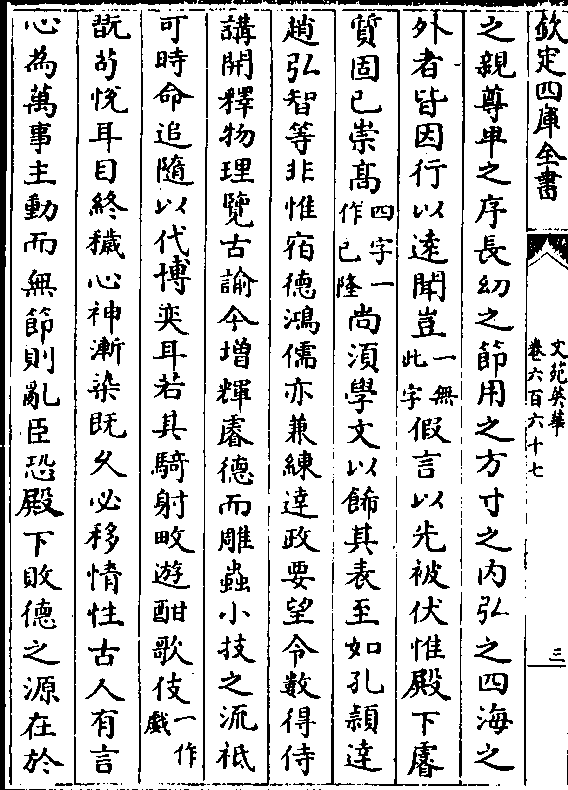 欽定四庫全書
文苑英華
卷六百六十七
三
之親尊卑之序長幼之節用之方寸之內弘之四海之
外者皆因行以遠聞豈一無此字假言以先被伏惟殿下睿
質固已崇高四字一作已隆尚須學文以飾其表至如孔頴達
趙弘智等非惟宿德鴻儒亦兼練達政要望令數得侍
講開釋物理覽古諭今增輝睿德而雕蟲小技之流祗
可時命追隨以代博奕耳若其騎射畋遊酣歌伎一作戲
翫苟悅耳目終穢心神漸染既久必移情性古人有言
心為萬事主動而無節則亂臣恐殿下敗德之源在於